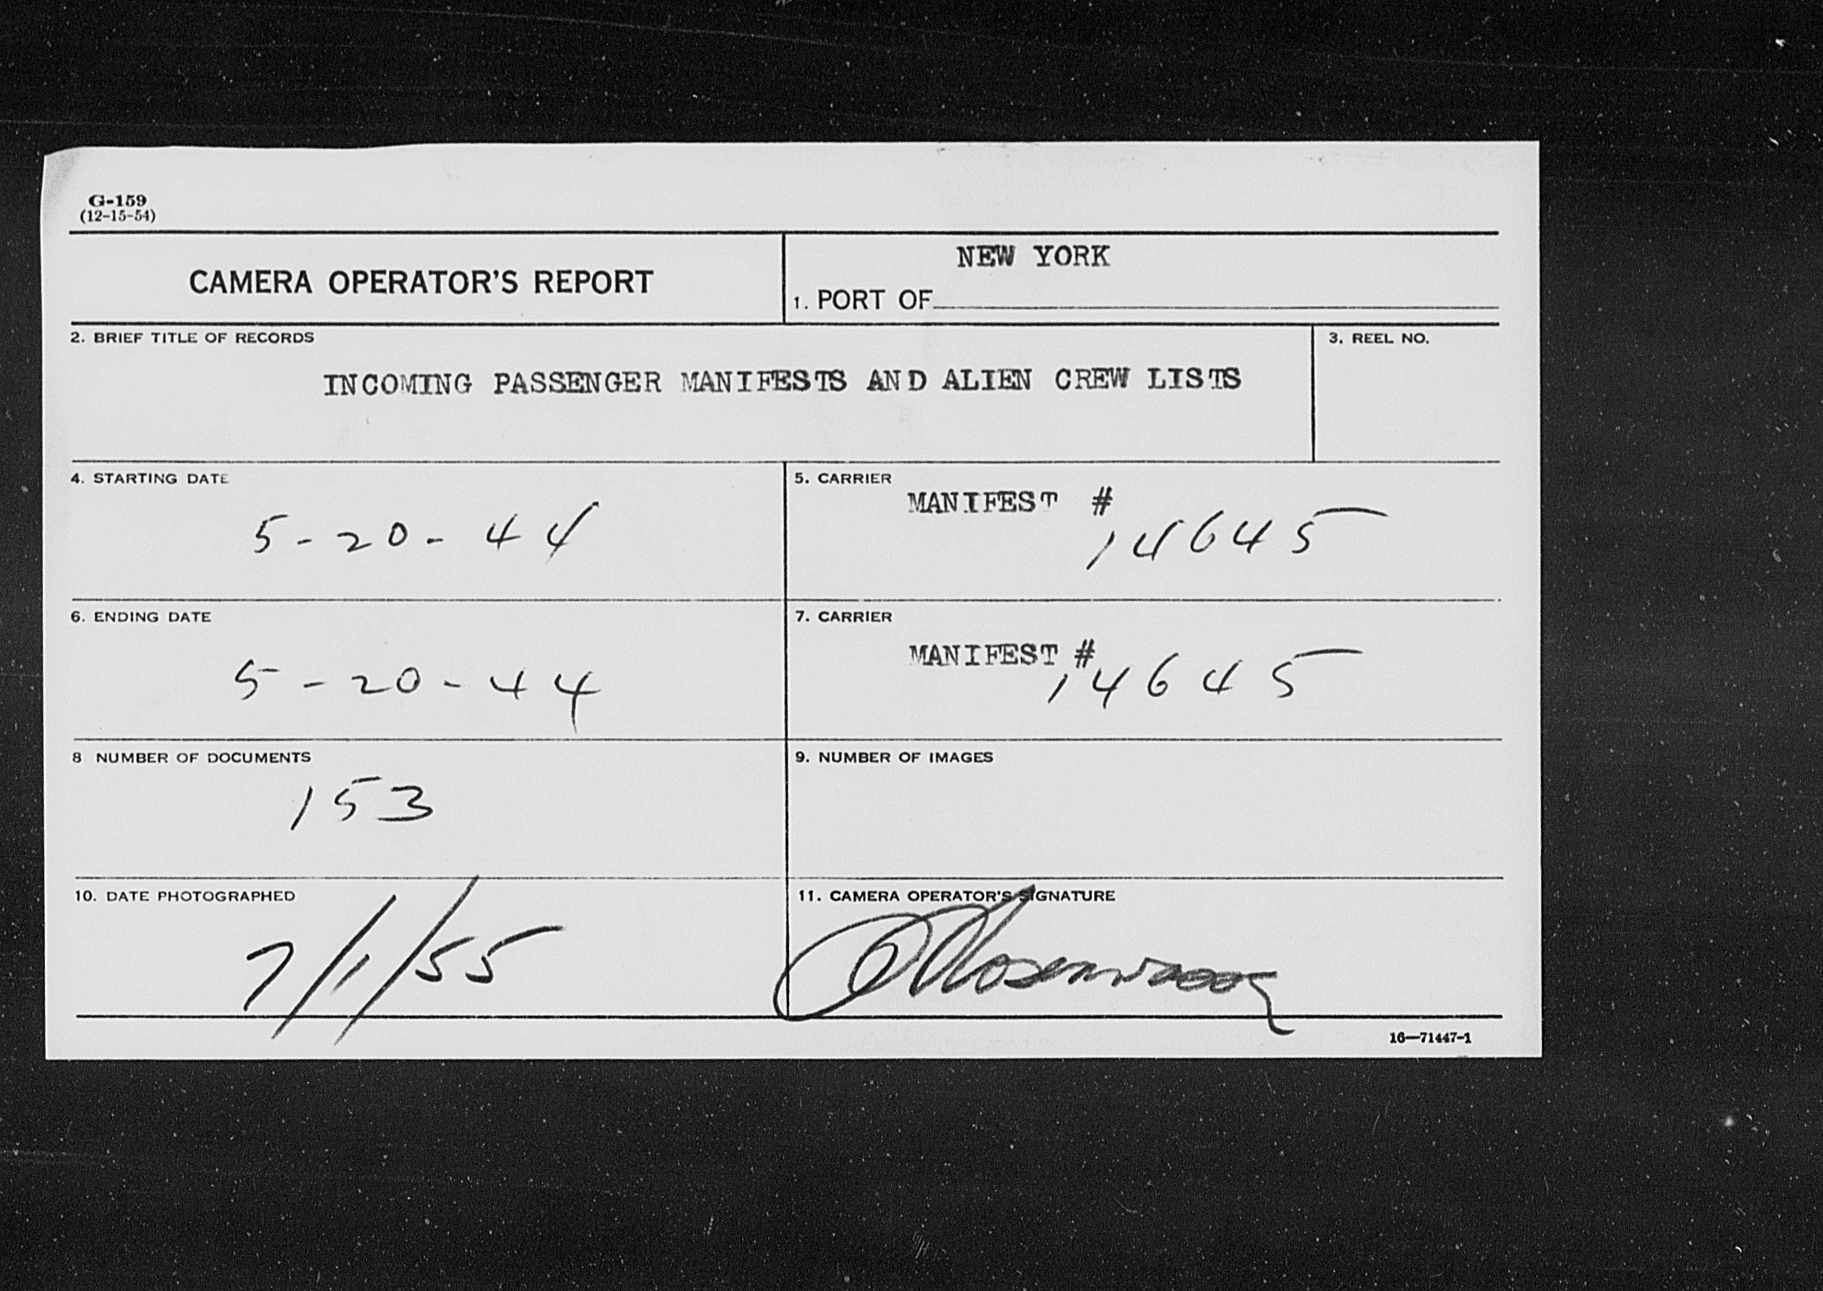 G-159
(12-15-54)
CAMERA OPERATOR'S REPORT
NEW YORK
1. PORT OF
2. BRIEF TITLE OF RECORDS
3. REEL NO.
INCOMING PASSENGER MANIFESTS AND ALIEN CREW LISTS
4. STARTING DATE
5-20-44
5. CARRIER
MANIFEST #
14645
6. ENDING DATE
5-20-44
7. CARRIER
MANIFEST #
14645
8 NUMBER OF DOCUMENTS
153
9. NUMBER OF IMAGES
10. DATE PHOTOGRAPHED
7/1/55
11. CAMERA OPERATOR'S SIGNATURE
16—71447-1